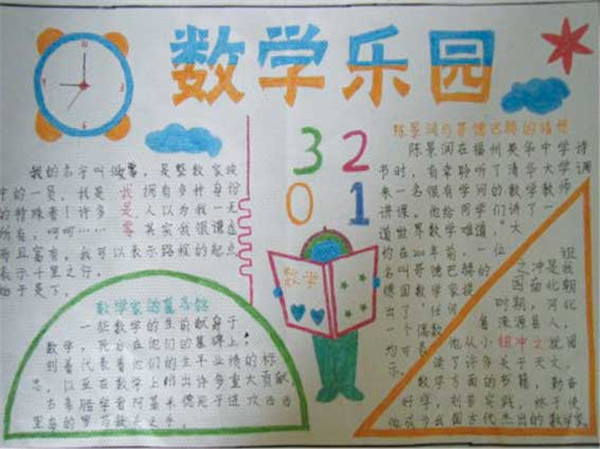 数学乐园
12
3
6
9
3 2
0 1
数学
我的名字叫做零，是整数家族
中的一员，我是 我 拥有多种身份
的特殊者！许多 是 人以为我一无
所有，呵呵…… 零 其实我很谦虚
而且富有，我可以表示路程的起点
表示千里之行，
始于足下。
数学家的墓志铭
一些数学的生前献身于
数学，死后在他们的墓碑上，
刻着代表着他们的生平业绩的标
志，以至在数学上的出许多重大贡献
古希腊学者阿基米德死于进攻西西
里
陈景润与哥德巴赫的猜想
陈景润在福州英华中学读
书时，有幸聆听了清华大学调
来一名很有学问的数学教师
讲课。他给同学们讲了一
道世界数学难道。"大
约在200年前，一位
名叫哥德巴赫的
德国数学家提
出了"任何
一个偶数
均可表
乐。
祖
之冲是我
国南北朝
时期，河北
省涞源县人，
他从小 祖冲之 就阅
读了许多关于天文，
数学方面的书籍，勤奋
好学，刻苦实践，终于使
他成为出国古代杰出的数学家。